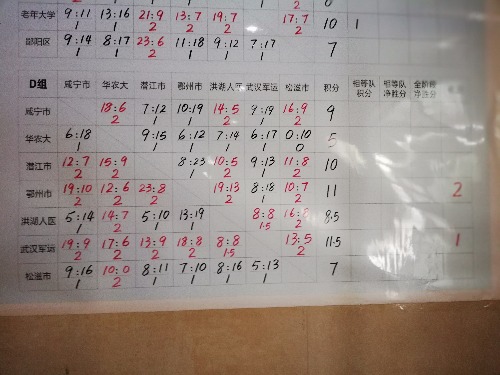 老年大学 11 13:16 21:9 13:7 19:7 17:7 10 1
1 1 2 2 2 2
郧阳区 9:14 8:17 23:6 11:18 9:12 7:17 7
1 1 2 1 1 1
D组 咸宁市 华农大 潜江市 鄂州市 洪湖人医 武汉军运 松滋市 积分 相等队积分 相等队净胜分 全阶段净胜分
咸宁市 18:6 7:12 10:19 14:5 9:19 16:9 9
2 1 1 2 1 2
华农大 6:18 9:15 6:12 7:14 6:17 0:10 5
1 1 1 1 1 0
潜江市 12:7 15:9 8:23 10:5 9:13 11:8 10
2 2 1 2 1 2
鄂州市 19:10 12:6 23:8 19:13 8:18 10:7 11 2
2 2 2 2 1 2
洪湖人医 5:14 14:7 5:10 13:19 8:8 16:8 8.5
1 2 1 1 1.5 2
武汉军运 19:9 17:6 13:9 18:8 8:8 13:5 11.5 1
2 2 2 2 1.5 2
松滋市 9:16 10:0 8:11 7:10 8:16 5:13 7
1 2 1 1 1 1